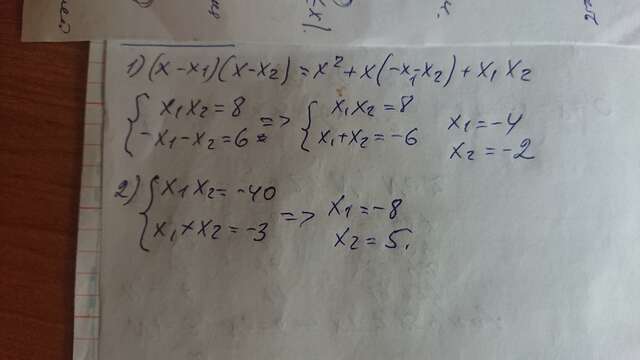 1) (x-x1)(x-x2)=x²+x(-x1-x2)+x1x2
{ x1x2=8 => { x1x2=8 x1=-4
{ -x1-x2=6 { x1+x2=-6 x2=-2
2) { x1x2=-40 => x1=-8
{ x1+x2=-3 x2=5.